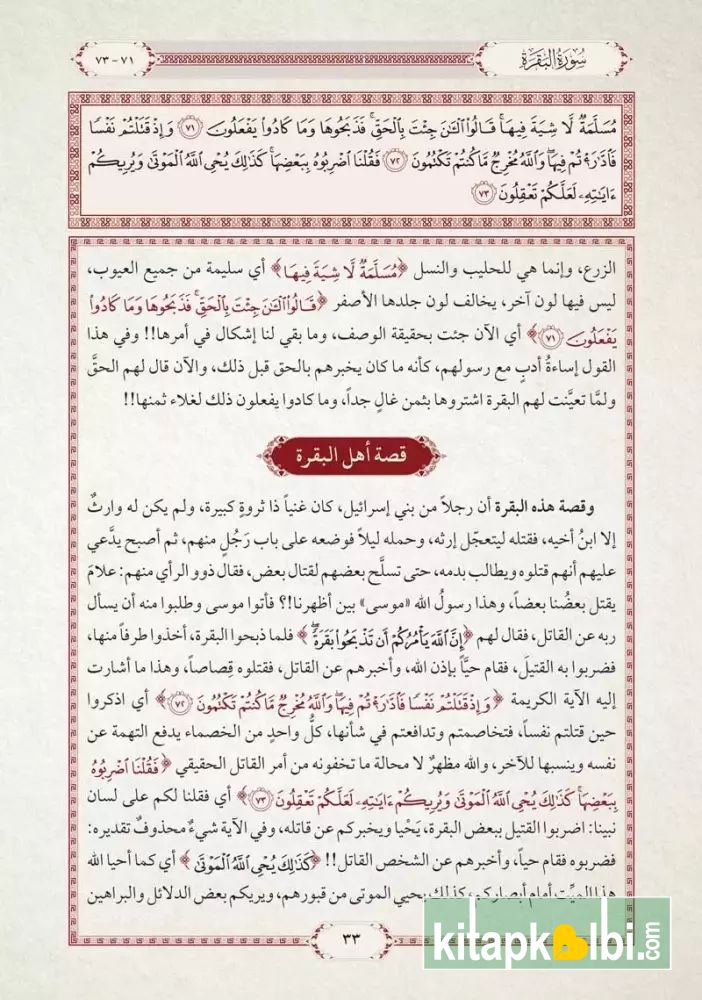 سُورَةُ البَقَرَة
٧١ - ٧٣
مُسَلَّمَةٌ لَّا شِيَةَ فِيهَا ۚ قَالُوا۟ ٱلْـَٰٔنَ جِئْتَ بِٱلْحَقِّ ۚ فَذَبَحُوهَا وَمَا كَادُوا۟ يَفْعَلُونَ ٧١ وَإِذْ قَتَلْتُمْ نَفْسًا
فَٱدَّٰرَْٰٔتُمْ فِيهَا ۖ وَٱللَّهُ مُخْرِجٌ مَّا كُنتُمْ تَكْتُمُونَ ٧٢ فَقُلْنَا ٱضْرِبُوهُ بِبَعْضِهَا ۚ كَذَٰلِكَ يُحْىِ ٱللَّهُ ٱلْمَوْتَىٰ وَيُرِيكُمْ
ءَايَٰتِهِۦ لَعَلَّكُمْ تَعْقِلُونَ ٧٣
الزرع، وإنما هي للحليب والنسل ﴿مُسَلَّمَةٌ لَّا شِيَةَ فِيهَا﴾ أي سليمة من جميع العيوب،
ليس فيها لون آخر، يخالف لون جلدها الأصفر ﴿قَالُوا۟ ٱلْـَٰٔنَ جِئْتَ بِٱلْحَقِّ ۚ فَذَبَحُوهَا وَمَا كَادُوا۟
يَفْعَلُونَ ٧١﴾ أي الآن جئت بحقيقة الوصف، وما بقي لنا إشكال في أمرها!! وفي هذا
القول إساءةُ أدبٍ مع رسولهم، كأنه ما كان يخبرهم بالحق قبل ذلك، والآن قال لهم الحقَّ
ولمَّا تعيَّنت لهم البقرة اشتروها بثمن غالٍ جداً، وما كادوا يفعلون ذلك لغلاء ثمنها!!
قصة أهل البقرة
وقصة هذه البقرة أن رجلاً من بني إسرائيل، كان غنياً ذا ثروةٍ كبيرة، ولم يكن له وارثٌ
إلا ابنُ أخيه، فقتله ليتعجّل إرثه، وحمله ليلاً فوضعه على باب رَجُلٍ منهم، ثم أصبح يدَّعي
عليهم أنهم قتلوه ويطالب بدمه، حتى تسلَّح بعضهم لقتال بعض، فقال ذوو الرأي منهم: علامَ
يقتل بعضُنا بعضاً، وهذا رسولُ الله «موسى» بين أظهرنا!؟ فأتوا موسى وطلبوا منه أن يسأل
ربه عن القاتل، فقال لهم ﴿إِنَّ ٱللَّهَ يَأْمُرُكُمْ أَن تَذْبَحُوا۟ بَقَرَةً ۖ﴾ فلما ذبحوا البقرة، أخذوا طرفاً منها،
فضربوا به القتيلَ، فقام حيَّاً بإذن الله، وأخبرهم عن القاتل، فقتلوه قِصاصاً، وهذا ما أشارت
إليه الآية الكريمة ﴿وَإِذْ قَتَلْتُمْ نَفْسًا فَٱدَّٰرَْٰٔتُمْ فِيهَا ۖ وَٱللَّهُ مُخْرِجٌ مَّا كُنتُمْ تَكْتُمُونَ ٧٢﴾ أي اذكروا
حين قتلتم نفساً، فتخاصمتم وتدافعتم في شأنها، كلُّ واحدٍ من الخصماء يدفع التهمة عن
نفسه وينسبها للآخر، والله مظهرٌ لا محالة ما تخفونه من أمر القاتل الحقيقي ﴿فَقُلْنَا ٱضْرِبُوهُ
بِبَعْضِهَا ۚ كَذَٰلِكَ يُحْىِ ٱللَّهُ ٱلْمَوْتَىٰ وَيُرِيكُمْ ءَايَٰتِهِۦ لَعَلَّكُمْ تَعْقِلُونَ ٧٣﴾ أي فقلنا لكم على لسان
نبينا: اضربوا القتيل ببعض البقرة، يَحْيا ويخبركم عن قاتله، وفي الآية شيءٌ محذوفٌ تقديره:
فضربوه فقام حياً، وأخبرهم عن الشخص القاتل!! ﴿كَذَٰلِكَ يُحْىِ ٱللَّهُ ٱلْمَوْتَىٰ﴾ أي كما أحيا الله
هذا الميِّت أمام أبصاركم، كذلك يحيي الموتى من قبورهم، ويريكم بعض الدلائل والبراهين
٣٣
kitapkalbi.com